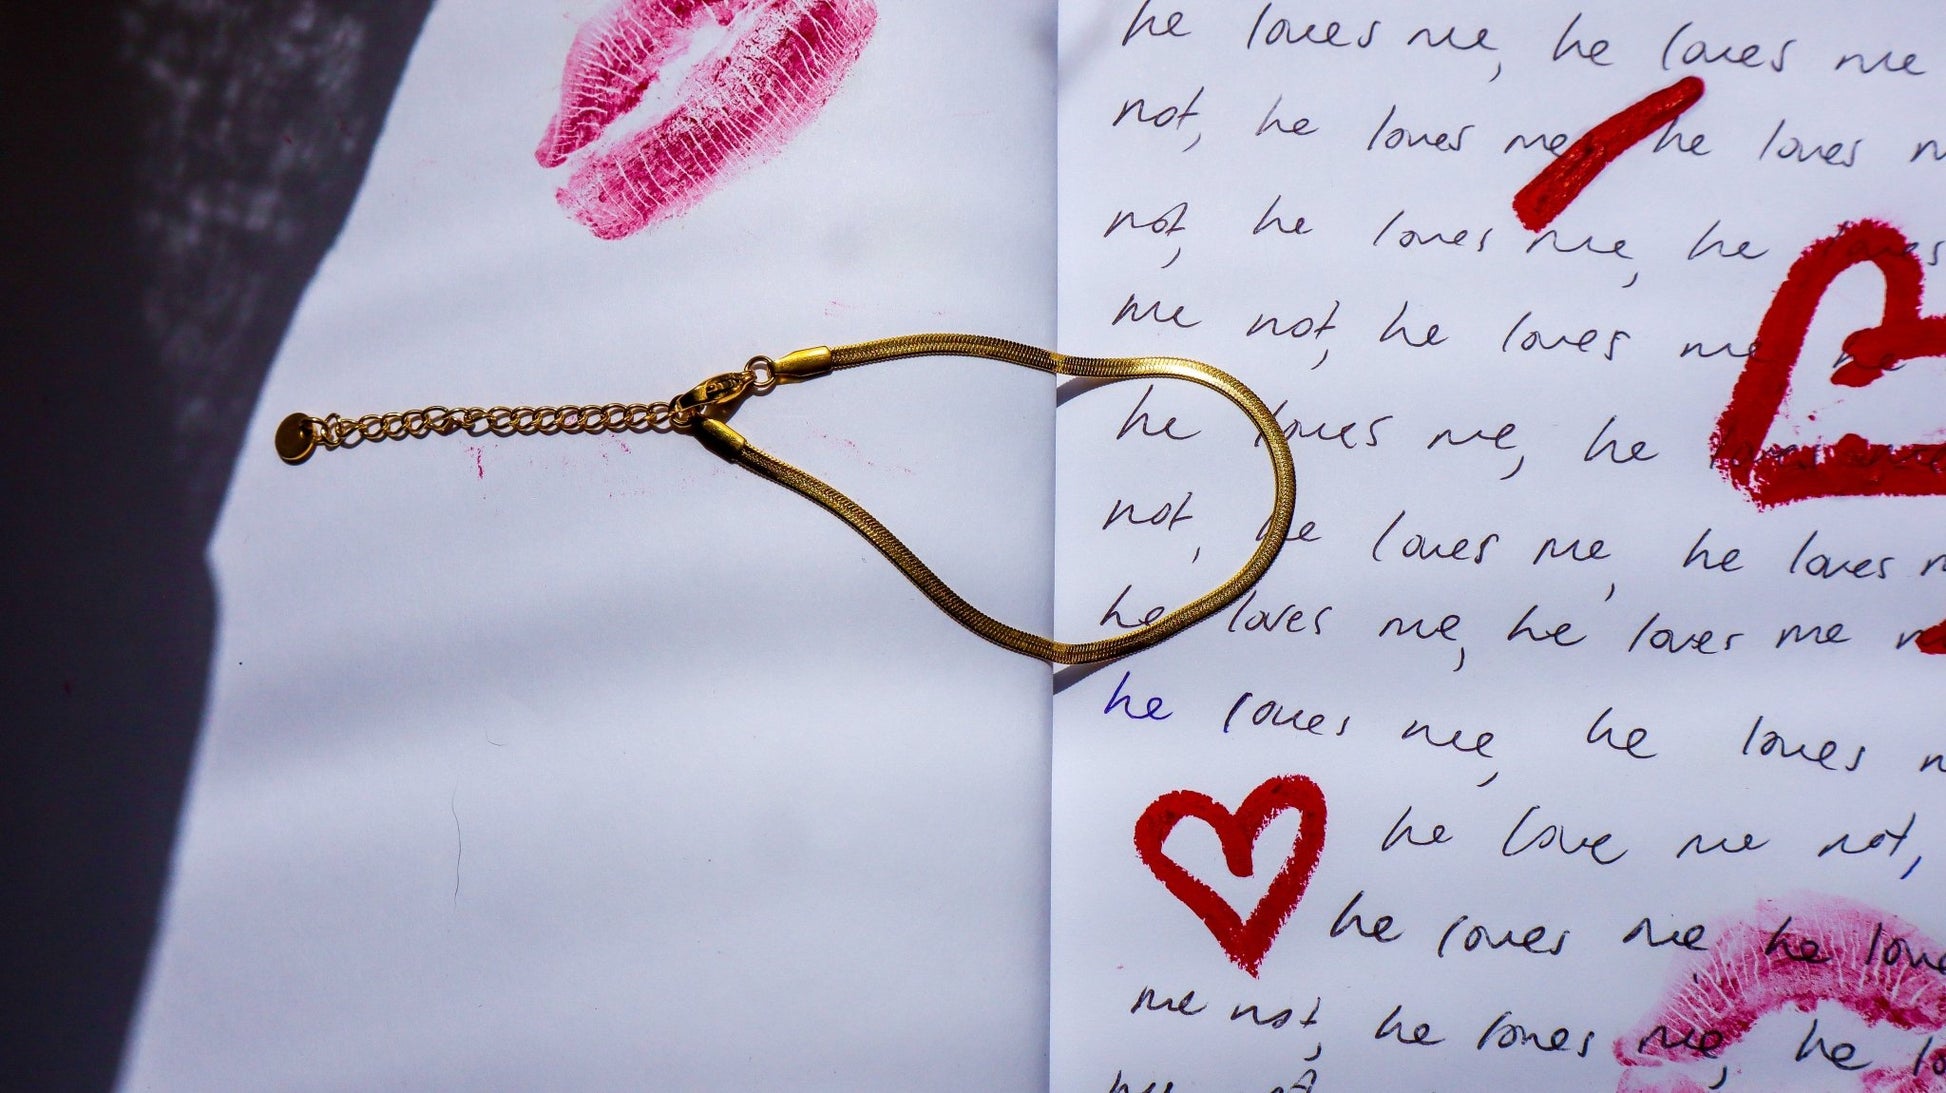 he loves me, he loves me
not, he loves me he loves
not, he loves me, he loves
me not, he loves me he
he loves me, he loves me
not, he loves me, he loves
he loves me, he loves me
he loves me, he loves
he love me not,
he loves me he
me not, he loves me, he